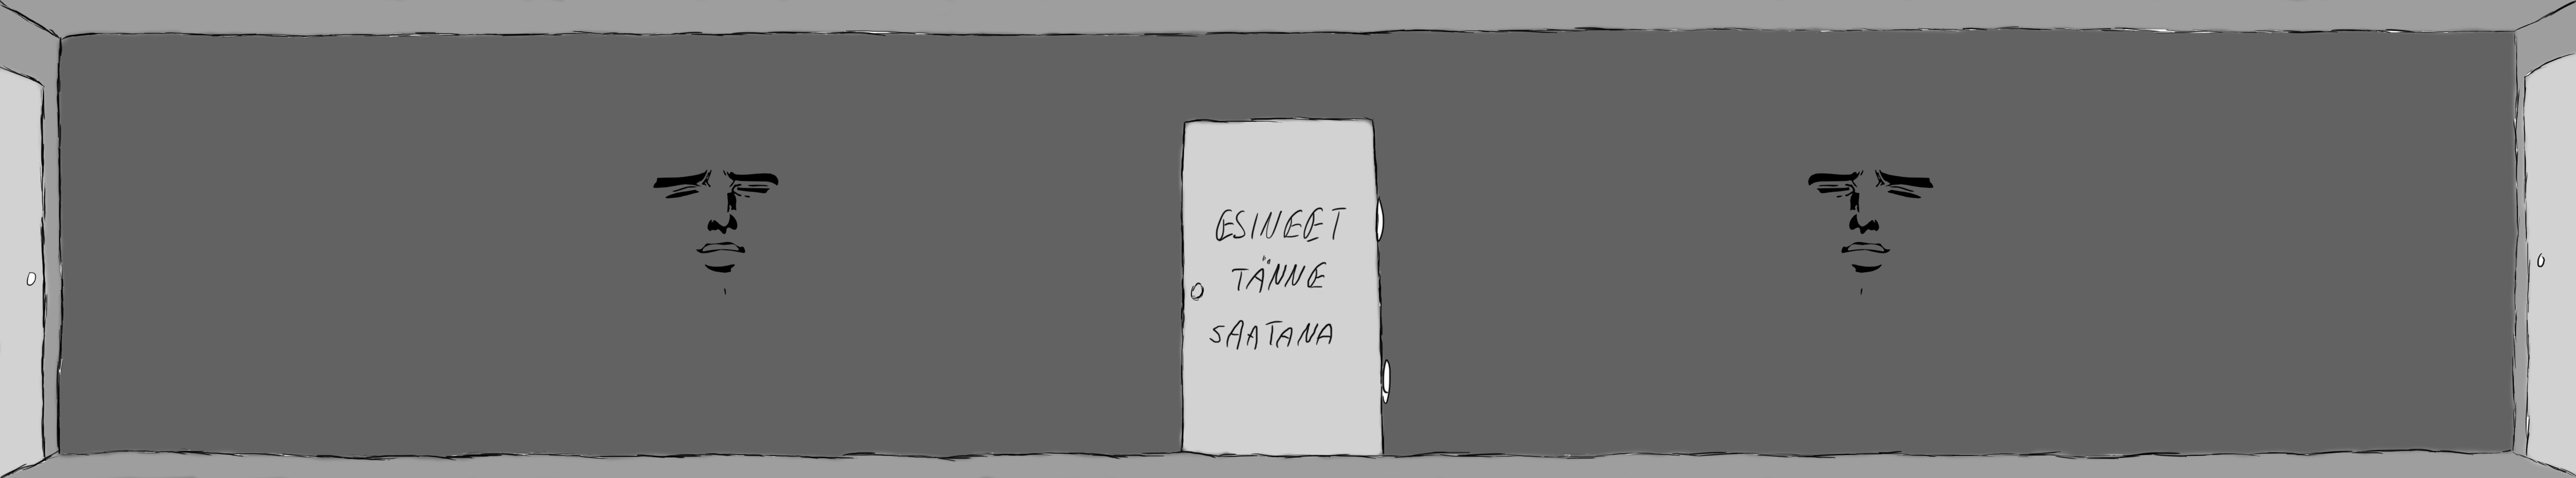 ESINEET
TÄNNE
SAATANA